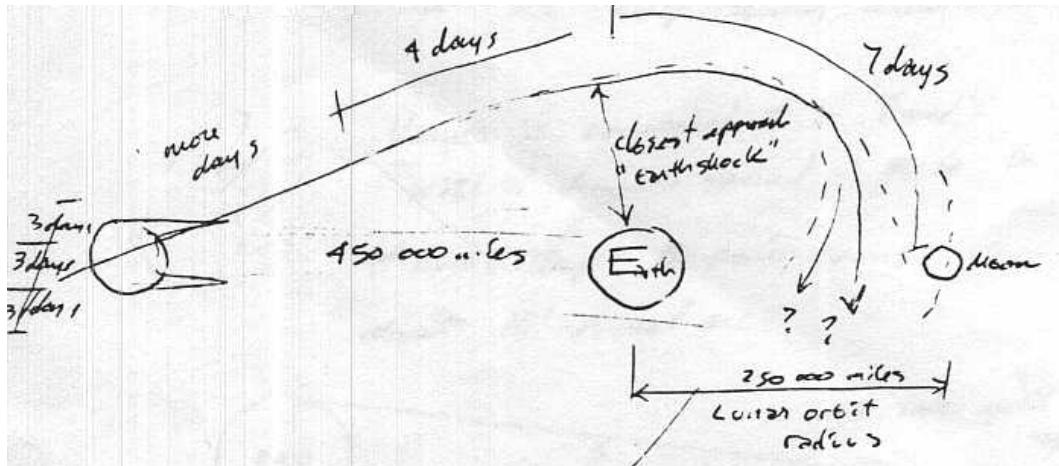 4 days
7 days
more
days
closest approach
"Earthshock"
3 days
3 days
3 days
450 000 miles
Earth
Moon
?
?
250 000 miles
Lunar orbit
radius